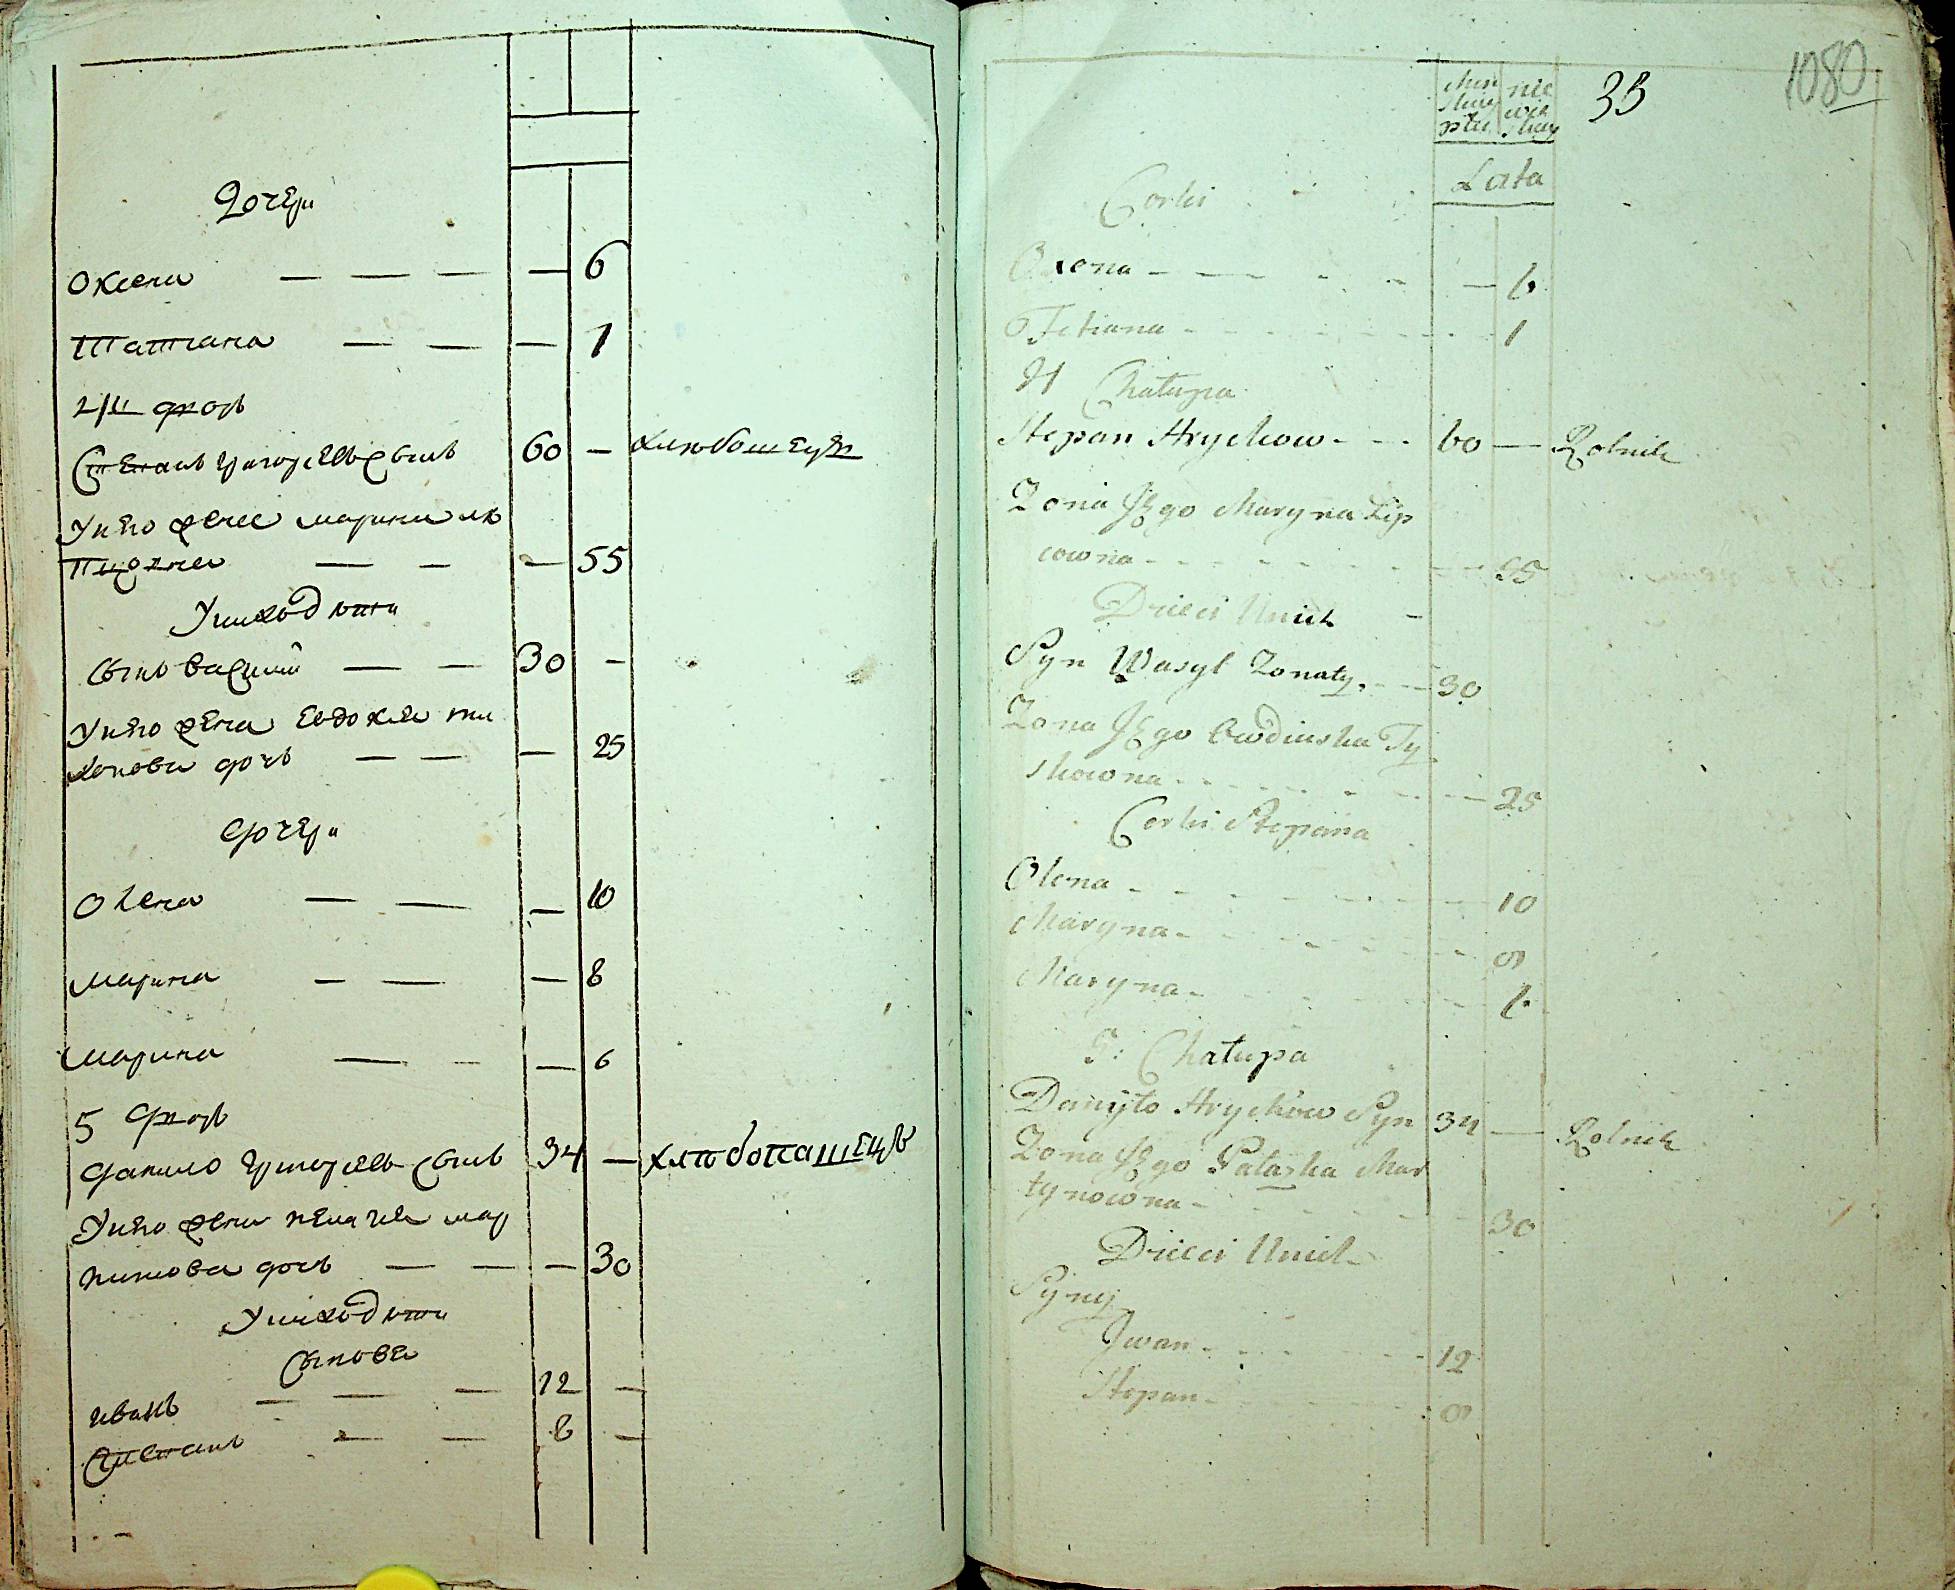 Дочери
Оксена — — — — 6
Татиана — — — 1
4й двор
Степанъ григорьевъ сынъ 60 — хлюбопашецъ
У него жена марина ля
— — — 55
У них дѣти
Сынъ василий — — 30 —
У него жена Евдокия ти
хонова дочь — — — 25
дочери
Олена — — — 10
марина — — — 8
марина — — — 6
5 двор
данило григорьевъ сынъ 34 — хлѣбопашецъ
У него жена пелагия мар
тинова дочь — — — 30
У них дѣти
Сынове
иванъ — — — 12 —
Степанъ — — 8 —
1080
33
Lata
Corki
Oxena - — 6
Tetiana - 1
4 Chałupa
Stepan Hryckow - - - 60 — Rolnik
Zona Jego Maryna Lip
cowna - 55
Dzieci Unich
Syn Wasyl Zonaty - 30
Zona Jego Owdiuska Ty
- 25
Corki Stepana
Olena - 10
Maryna - 8
Maryna - 6
5: Chałupa
Daniyło Hryckow Syn 34 — Rolnik
Zona Jego Pałazka Mar
tynowna - 30
Dzieci Unich
Syny
Jwan - 12
Stepan - 8